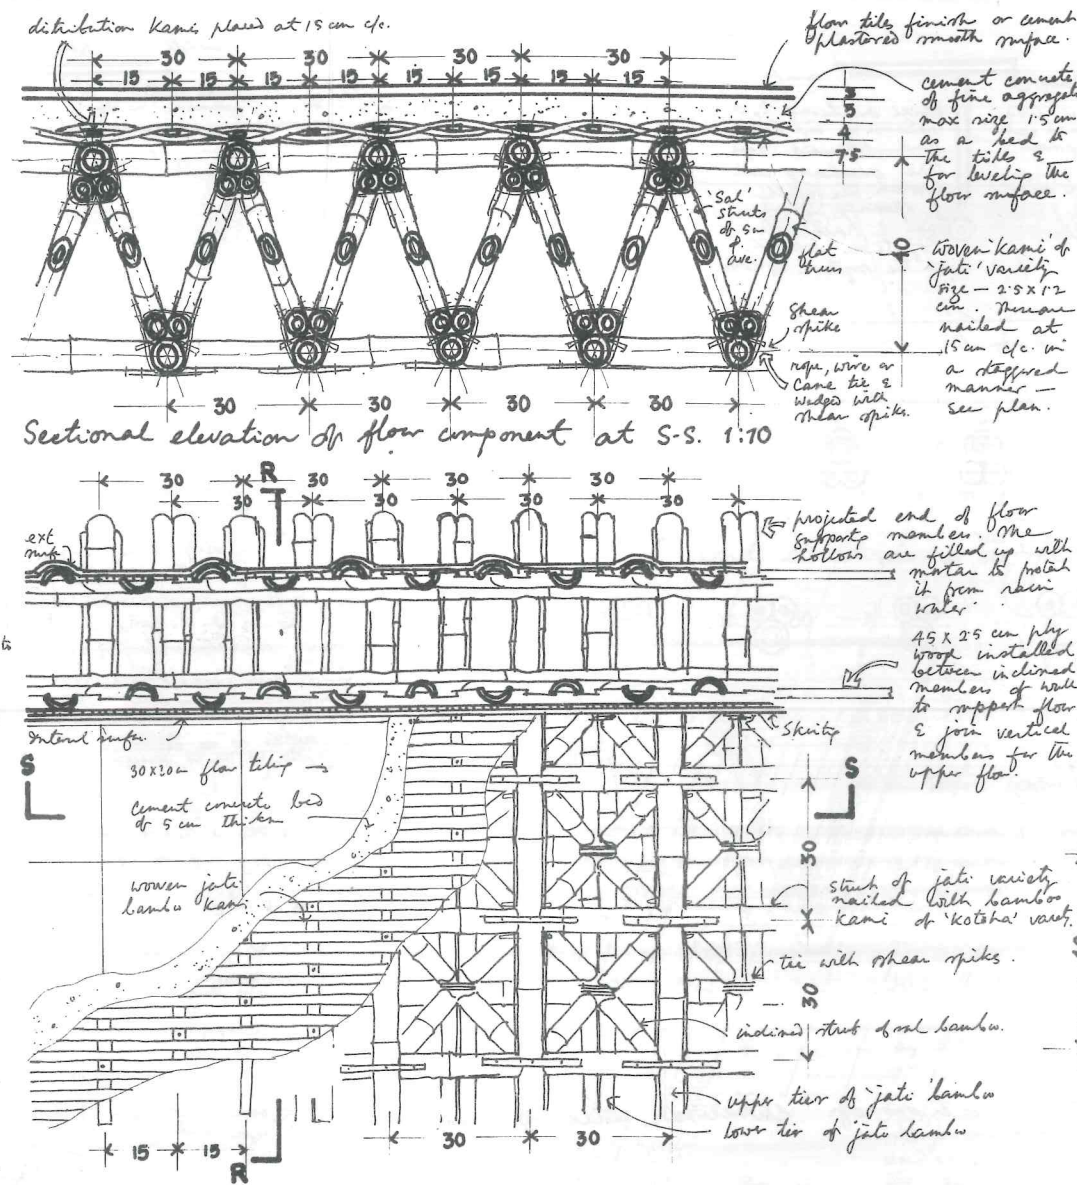 distribution kami placed at 15 cm c/c.
floor tiles finish or cement
plastered smooth surface.
30 30 30 30
15 15 15 15 15 15 15 15
cement concrete
of fine aggregate
max size 1.5 cm
as a bed to
the tiles &
for leveling the
floor surface.
3
5
4
7.5
40
'Sal'
struts
of 5 cm
ϕ.
ave.
flat
shear
spike
rope, wire or
cane tie &
wedged with
shear spike.
woven 'kami' of
'jati' variety
size - 2.5 x 1.2
cm. These are
nailed at
15 cm c/c. in
a staggered
manner -
see plan.
30 30 30 30
Sectional elevation of floor component at S-S. 1:10
R
30 30 30 30
30 30 30 30
ext
surf.
projected end of floor
supporting members. The
hollows are filled up with
mortar to protect
it from rain
water
to
45 x 2.5 cm ply
wood installed
between inclined
members of wall
to support floor
& join vertical
members for the
upper floor.
Internal surface.
Skirting
S
S
30x30 cm floor tiling
Cement concrete bed
of 5 cm thickn
woven jati
bamboo kami
30
30
strut of jati variety
nailed with bamboo
kami of 'kotoha' variety.
tie with shear spikes.
inclined strut of sal bamboo.
upper tier of 'jati' bamboo
lower tier of jati bamboo
15 15
30 30
R